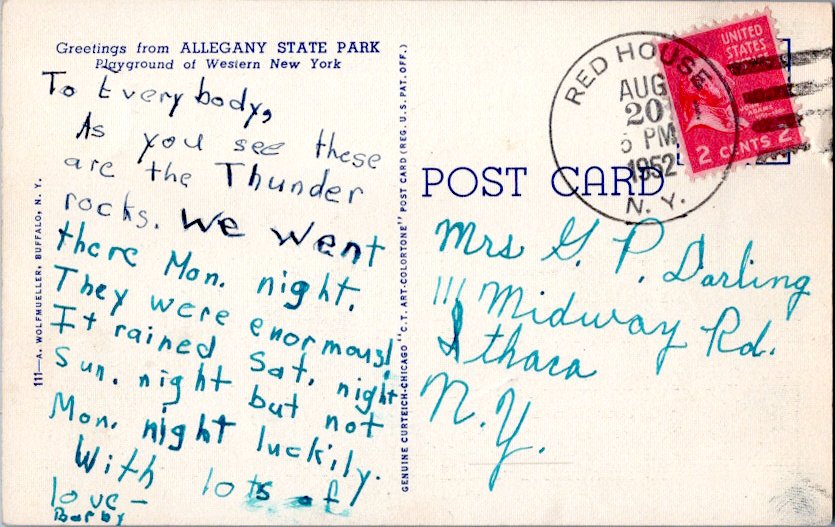 Greetings from ALLEGANY STATE PARK
Playground of Western New York
To Everybody,
As you see these
are the Thunder
rocks. We went
there Mon. night.
They were enormous!
It rained Sat. night
Sun. night but not
Mon. night luckily.
With lots of
love—
Barby
111—A. WOLFMUELLER, BUFFALO, N. Y.
GENUINE CURTEICH-CHICAGO "C.T. ART-COLORTONE" POST CARD (REG. U.S. PAT. OFF.)
POST CARD
RED HOUSE
AUG
20
5 PM
1952
N. Y.
UNITED
STATES
2 CENTS 2
Mrs G. P. Darling
111 Midway Rd.
Ithaca
N.Y.